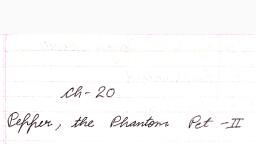 Ch-20
Pepper, the Phantom Pet -II